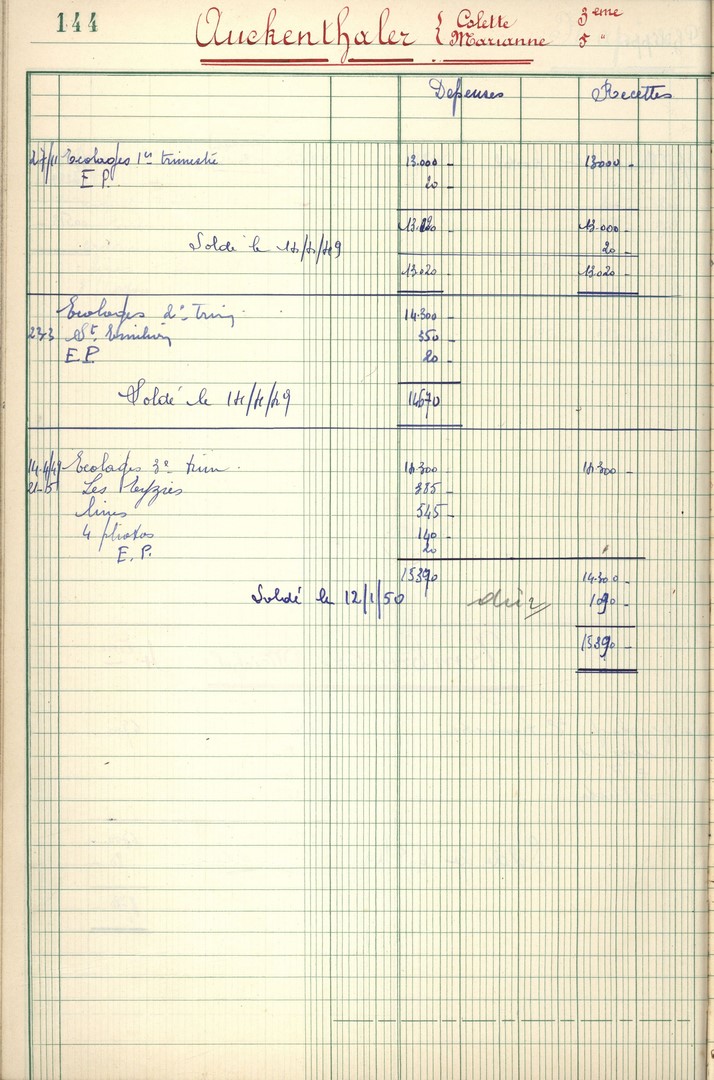 144
Auckenthaler { Colette 3eme
Marianne 5 "
Depenses Recettes
27/11 Ecolages 1er trimestre 13.000 - 13000 -
E P. 20 -
13.020 13.000
Soldé le 14/4/49 20 -
13.020 13.020
Ecolages 2e trim. 14.300
23-3 St Emilion 350
E.P. 20 -
Soldé le 14/4/49 14670
14.4/49 Ecolages 3e trim. 14.300 14.300 -
21-5 Les Eyzies 385 -
livres 545 -
4 photos 140 -
E. P. 20
15390 14.300 -
Soldé le 12/1/50 dûs 1090 -
15390 -